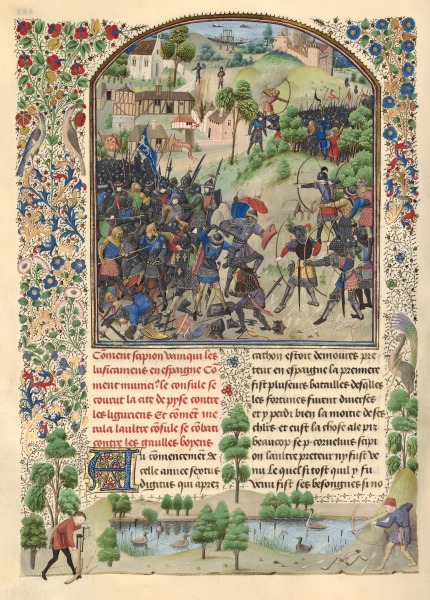 Cõment sapion vainqui les
lusicamens en espaigne Co
ment munici⁹ le consule se
courut la cite de pyse contre
les liguriens Et cõmẽt me
rula laultre cõsule se cõbati
contre les gaulles boyens
Au cõmencement de
celle annee sextus
digitius qui apres
cathon estoit demoure pre
teur en espaigne la premiere
fist plusieurs batailles desqlles
les fortunes furent diuerses
et y perdi bien la moitie de ses
et eust la chose ale pis
beaucop se p. cornelius sapi
on laultre preteur ny fust ve
nu Lequel si tost quil y fu
venu fist ses besongnes si no